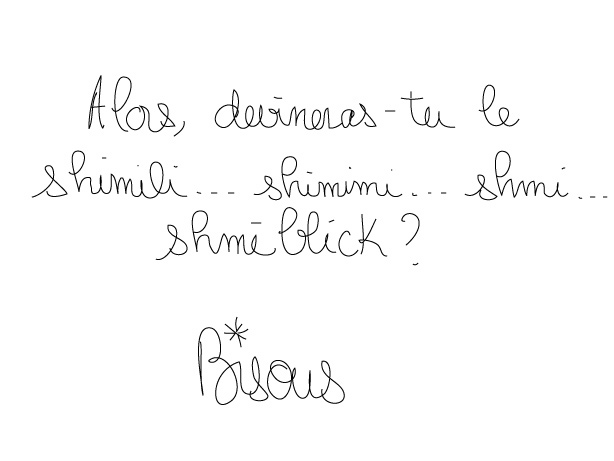 Alors, devineras-tu le
shimili... shimimi... shmi...
shmēblick ?
Bisous